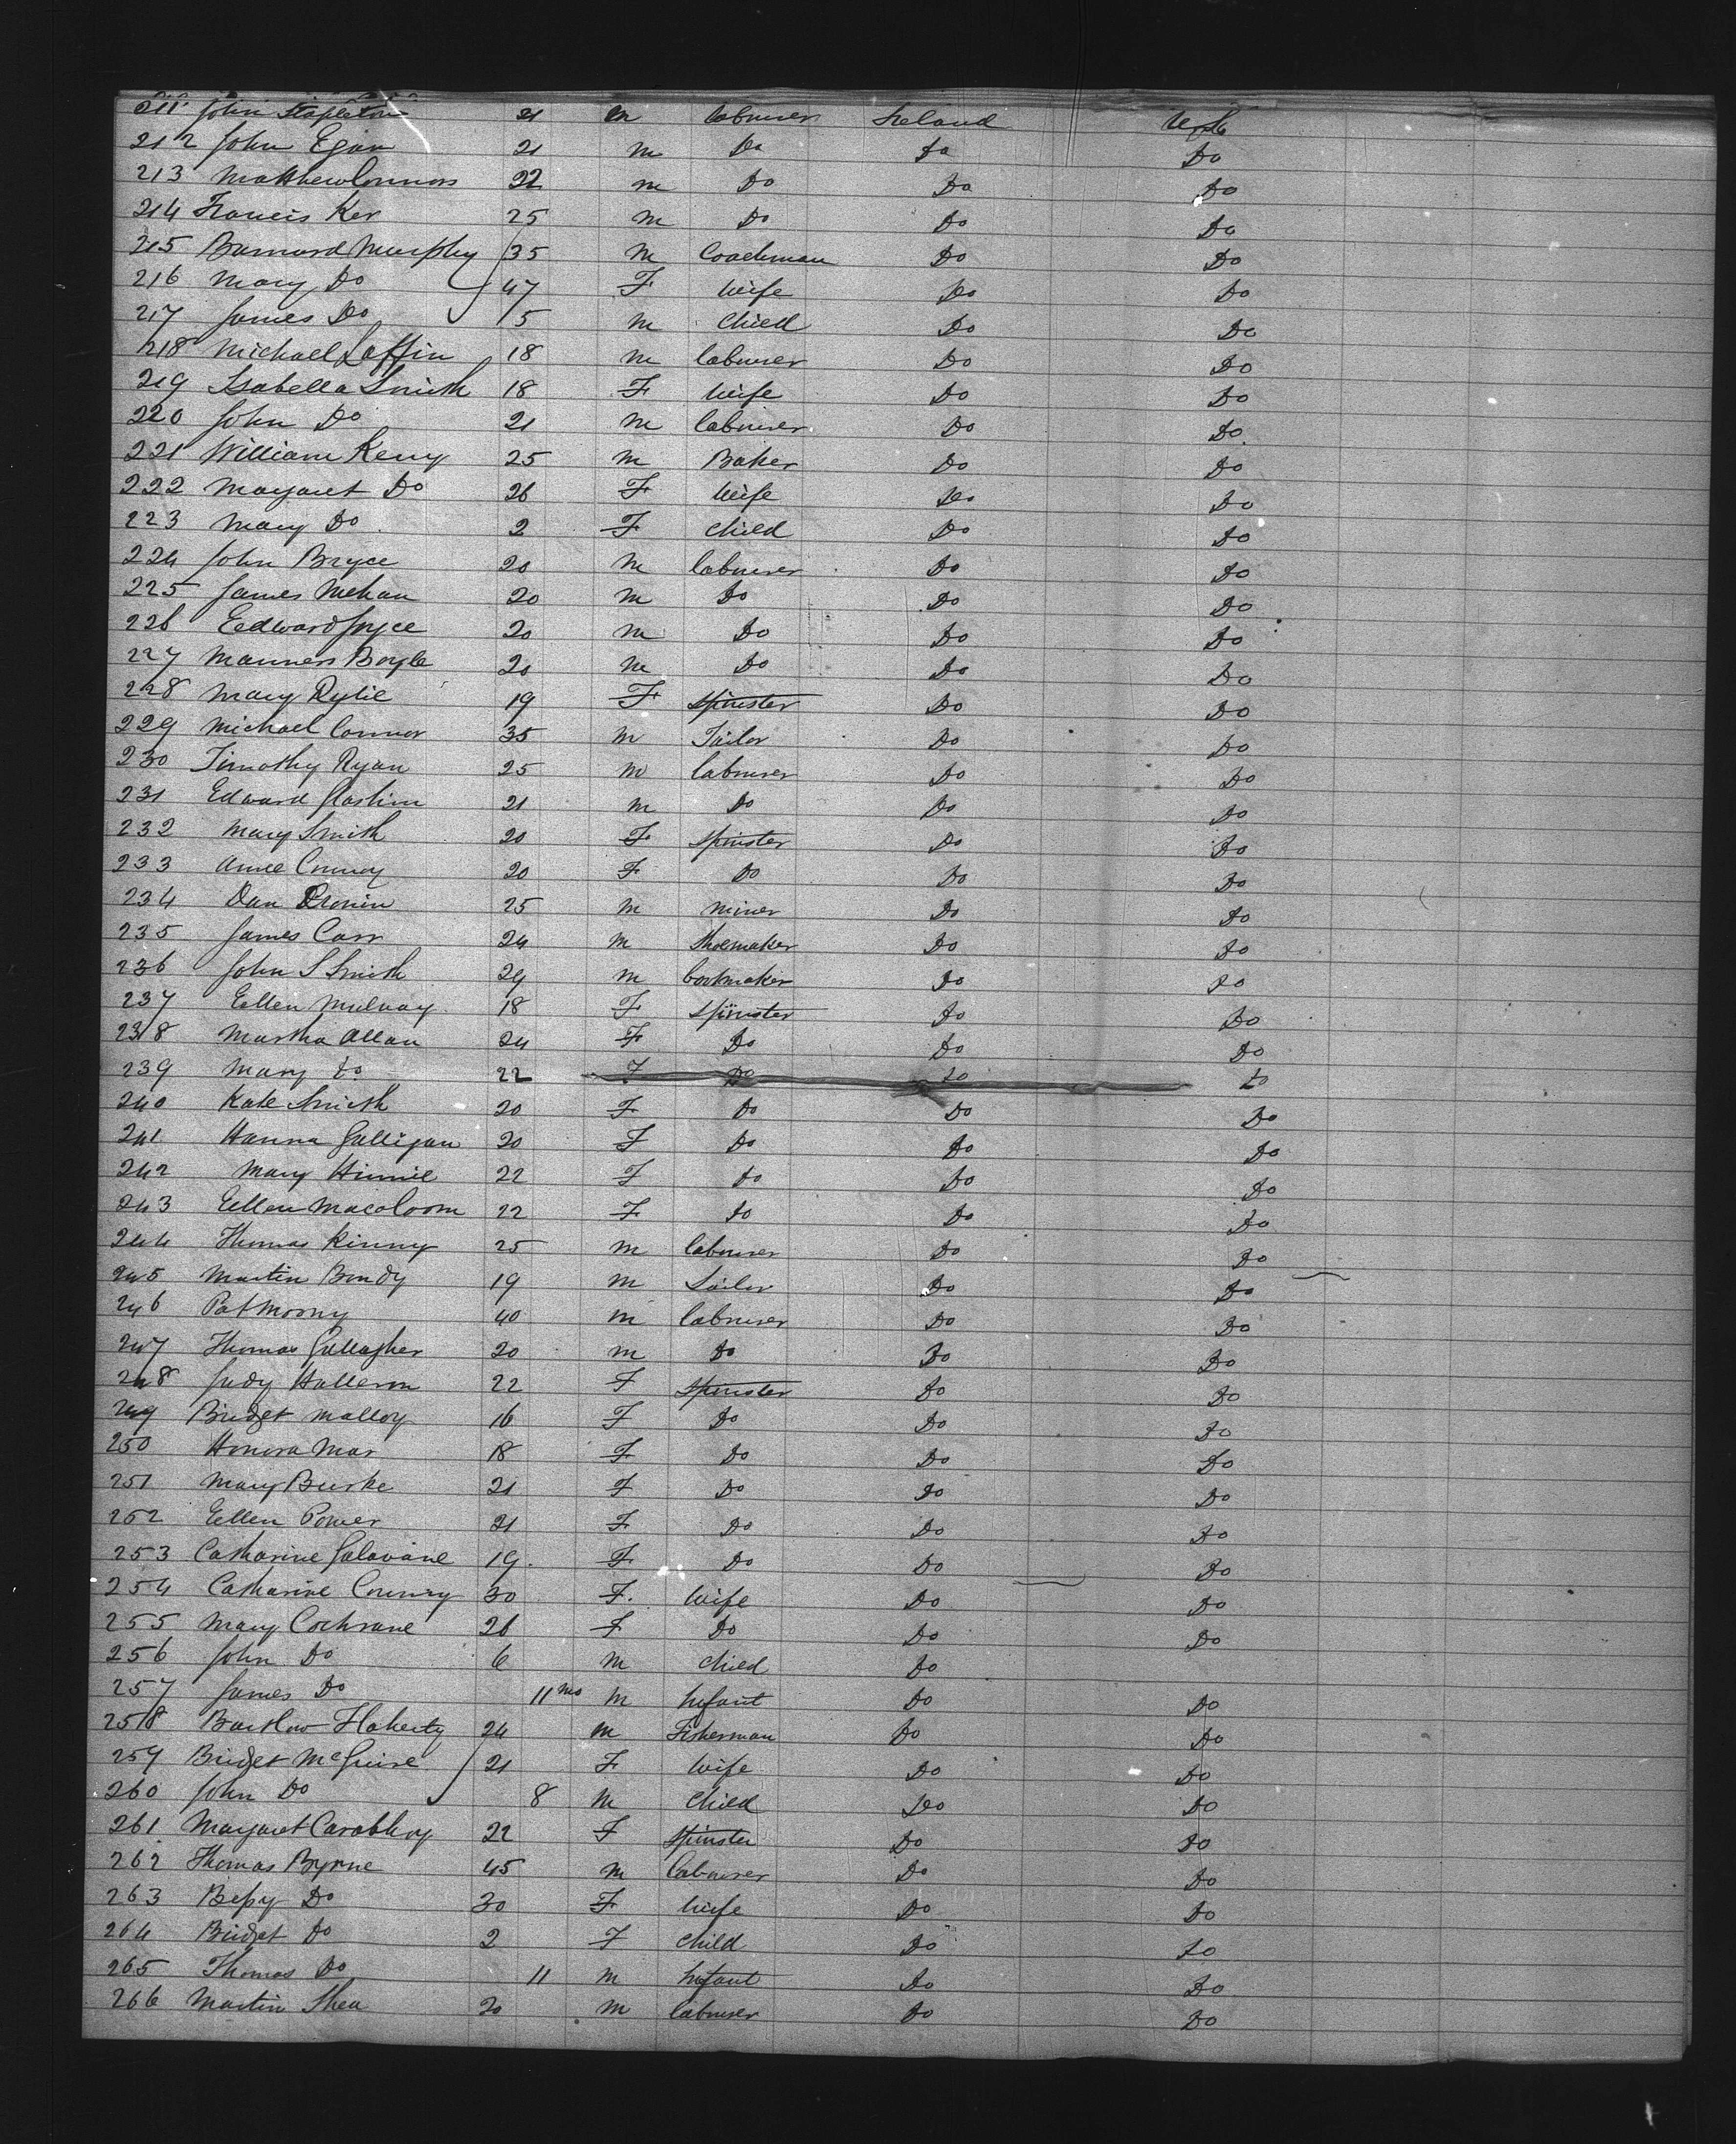 211 John Stapleton 21 m labourer Ireland U.S.
212 John Egan 21 m Do Do Do
213 Matthew Connors 22 m Do Do Do
214 Francis Ker 25 m Do Do Do
215 Barnard Murphy 35 m Coachman Do Do
216 Mary Do 47 F Wife Do Do
217 James Do 5 m Child Do Do
218 Michael Laffin 18 m labourer Do Do
219 Isabella Smith 18 F Wife Do Do
220 John Do 21 m labourer Do Do
221 William Keny 25 m Baker Do Do
222 Margaret Do 26 F Wife Do Do
223 Mary Do 2 F Child Do Do
224 John Bryce 20 m labourer Do Do
225 James Mehan 20 m Do Do Do
226 Eedward Joyce 20 m Do Do Do
227 Manners Boyle 20 m Do Do Do
228 Mary Rylie 19 F Spinster Do Do
229 Michael Connor 35 m Tailor Do Do
230 Timothy Ryan 25 m labourer Do Do
231 Edward 21 m Do Do Do
232 Mary Smith 20 F Spinster Do Do
233 Anne Conroy 20 F Do Do Do
234 Dan Cronin 25 m Miner Do Do
235 James Carr 24 m Shoemaker Do Do
236 John S Smith 29 m bookmaker Do Do
237 Eellen Mulvay 18 F Spinster Do Do
238 Martha Allan 24 F Do Do Do
239 Mary Do 22 F Do Do Do
240 Kate Smith 20 F Do Do Do
241 Hanna Galligan 20 F Do Do Do
242 Mary Hinnie 22 F Do Do Do
243 Eellen Macaloom 22 F Do Do Do
244 Thomas Kinny 25 m labourer Do Do
245 Martin Brady 19 m Sailor Do Do
246 Pat Moony 40 m labourer Do Do
247 Thomas Gallagher 20 m Do Do Do
248 Judy Halleran 22 F Spinster Do Do
249 Bridget Malloy 16 F Do Do Do
250 Honora Mar 18 F Do Do Do
251 Mary Burke 21 F Do Do Do
252 Eellen Power 21 F Do Do Do
253 Catharine Galavane 19 F Do Do Do
254 Catharine 30 F. Wife Do Do
255 Mary Cochrane 26 F Do Do Do
256 John Do 6 m Child Do
257 James Do 11 mo m Infant Do Do
258 Bartlow Flaherty 24 m Fisherman Do Do
259 Bridget McGuire 21 F Wife Do Do
260 John Do 8 m Child Do Do
261 Margaret 22 F Spinster Do Do
262 Thomas Byrne 45 m labourer Do Do
263 Bessy Do 30 F Wife Do Do
264 Bridget Do 2 F Child Do Do
265 Thomas Do 11 m Infant Do Do
266 Martin Shea 20 m labourer Do Do